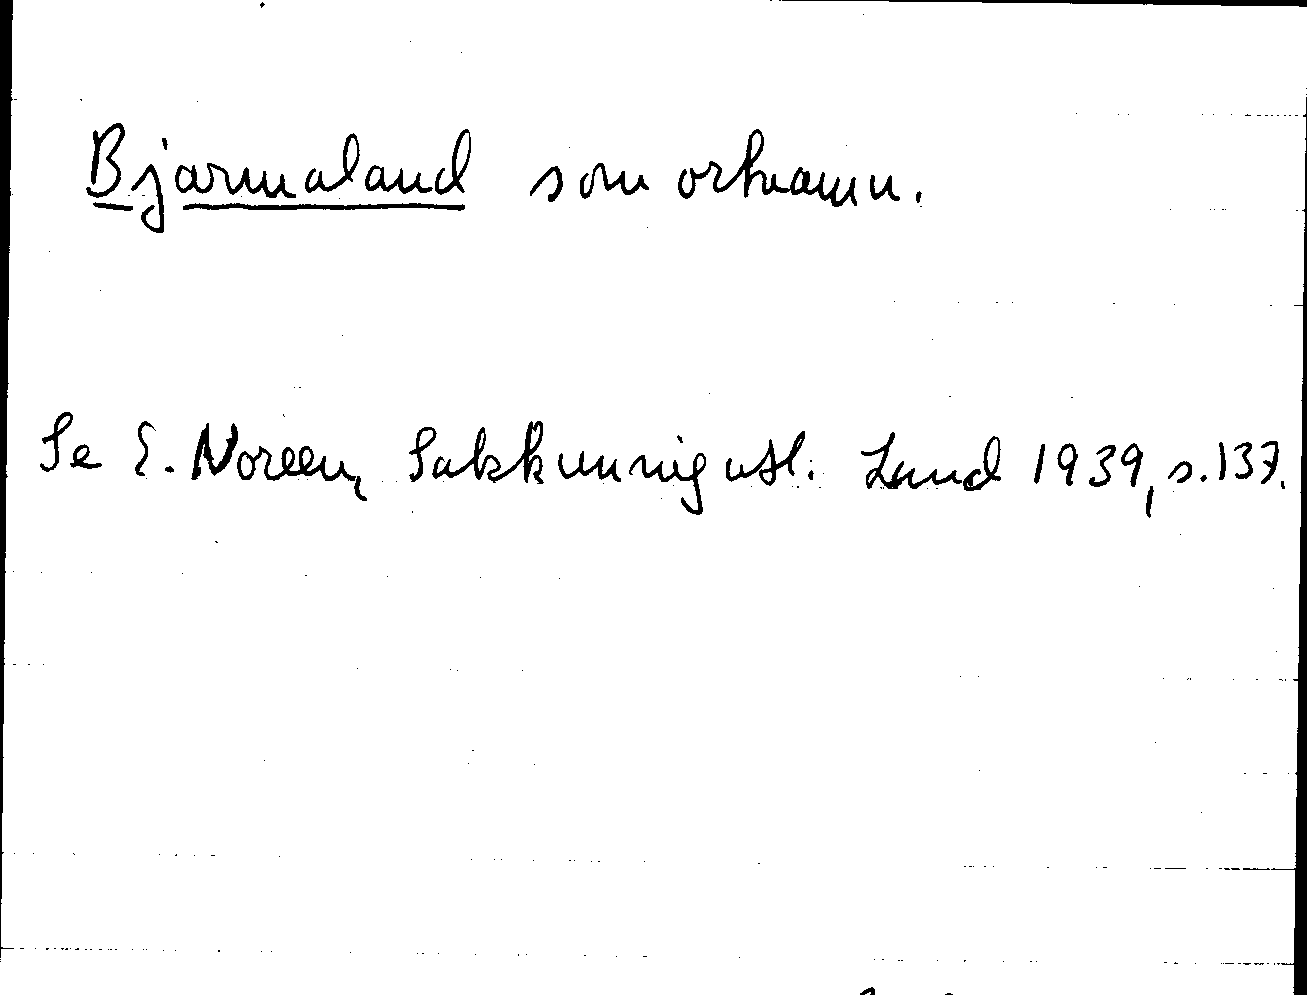 Bjarmaland som ortnamn.
Se E. Noreen, Sakkunnigutl. Lund 1939, s. 137.